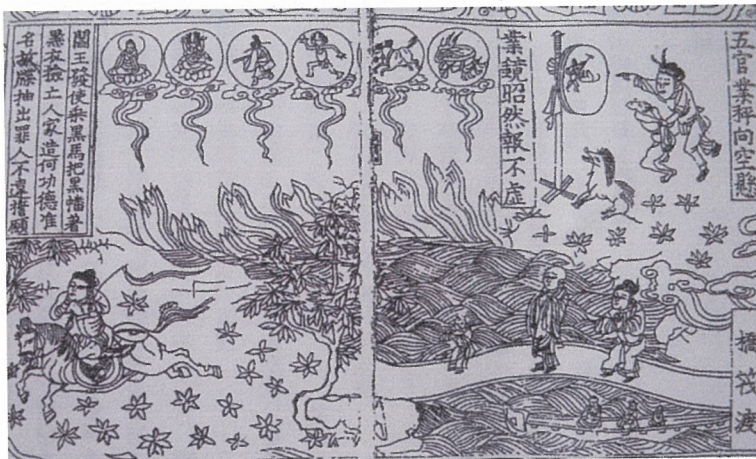 五官業秤向空懸
業鏡昭然報不虛
閻王發使乘黑馬把黑幡著
黑衣檢亡人家造何功德准
名放牒抽出罪人不違誓願